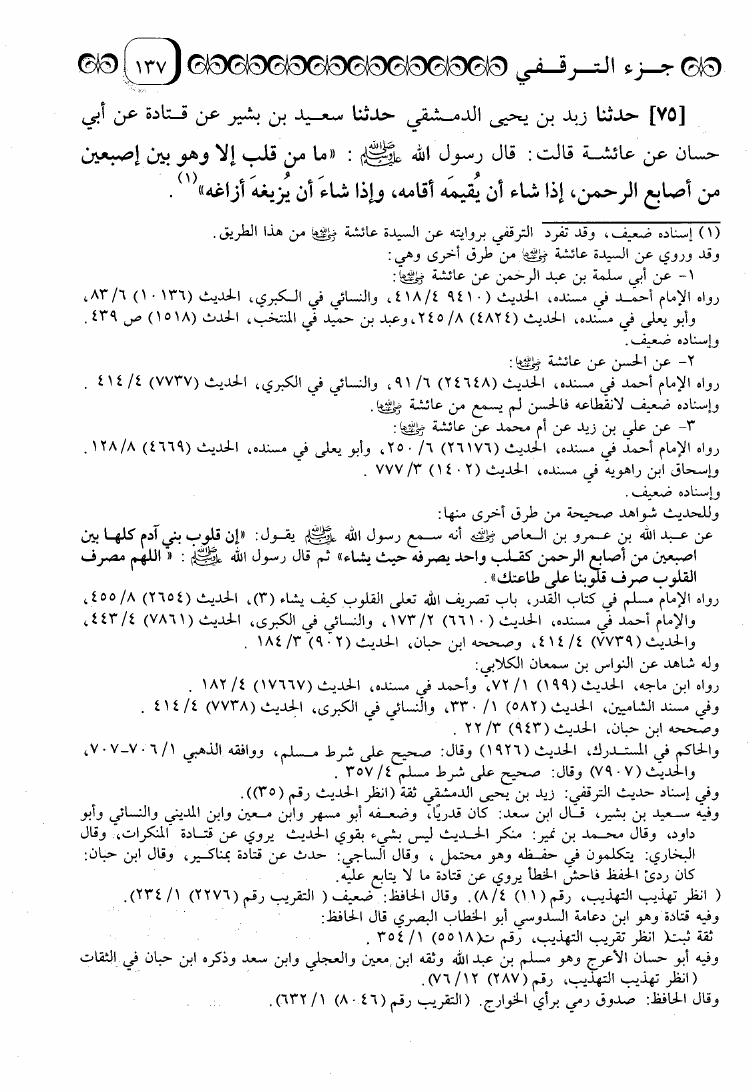 جزء الترقفي ١٣٧
[٧٥] حدثنا زيد بن يحيى الدمشقي حدثنا سعيد بن بشير عن قتادة عن أبي
حسان عن عائشة قالت: قال رسول الله ﷺ : «ما من قلب إلا وهو بين إصبعين
من أصابع الرحمن، إذا شاء أن يُقيمَه أقامه، وإذا شاءَ أن يُزيغهَ أزاغه»(١) .
(١) إسناده ضعيف، وقد تفرد الترقفي بروايته عن السيدة عائشة رضي الله عنها من هذا الطريق.
وقد وروي عن السيدة عائشة رضي الله عنها من طرق أخرى وهي:
١- عن أبي سلمة بن عبد الرحمن عن عائشة رضي الله عنها:
رواه الإمام أحمد في مسنده، الحديث (٩٤١٠ ٤١٨/٤، والنسائي في الكبري، الحديث (١٠١٣٦) ٨٣/٦،
وأبو يعلى في مسنده، الحديث (٤٨٢٤) ٢٤٥/٨، وعبد بن حميد في المنتخب، الحدث (١٥١٨) ص ٤٣٩ .
وإسناده ضعيف.
٢- عن الحسن عن عائشة رضي الله عنها:
رواه الإمام أحمد في مسنده، الحديث (٢٤٦٤٨) ٩١/٦، والنسائي في الكبري، الحديث (٧٧٣٧) ٤١٤/٤ .
وإسناده ضعيف لانقطاعه فالحسن لم يسمع من عائشة رضي الله عنها.
٣- عن علي بن زيد عن أم محمد عن عائشة رضي الله عنها:
رواه الإمام أحمد في مسنده، الحديث (٢٦١٧٦) ٢٥٠/٦، وأبو يعلى في مسنده، الحديث (٤٦٦٩) ١٢٨/٨.
وإسحاق ابن راهويه في مسنده، الحديث (١٤٠٢) ٧٧٧/٣ .
وإسناده ضعيف.
وللحديث شواهد صحيحة من طرق أخرى منها:
عن عبد الله بن عمرو بن العاص رضي الله عنه أنه سمع رسول الله ﷺ يقول: «إن قلوب بني آدم كلها بين
اصبعين من أصابع الرحمن كقلب واحد يصرفه حيث يشاء» ثم قال رسول الله ﷺ : « اللهم مصرف
القلوب صرف قلوبنا على طاعتك».
رواه الإمام مسلم في كتاب القدر، باب تصريف الله تعلى القلوب كيف يشاء (٣)، الحديث (٢٦٥٤) ٤٥٥/٨،
والإمام أحمد في مسنده، الحديث (٦٦١٠) ١٧٣/٢، والنسائي في الكبرى، الحديث (٧٨٦١) ٤٤٣/٤،
والحديث (٧٧٣٩) ٤١٤/٤، وصححه ابن حبان، الحديث (٩٠٢) ١٨٤/٣ .
وله شاهد عن النواس بن سمعان الكلابي:
رواه ابن ماجه، الحديث (١٩٩) ٧٢/١، وأحمد في مسنده، الحديث (١٧٦٦٧) ١٨٢/٤ .
وفي مسند الشاميين، الحديث (٥٨٢) ٣٣٠/١، والنسائي في الكبرى، الحديث (٧٧٣٨) ٤١٤/٤ .
وصححه ابن حبان، الحديث (٩٤٣) ٢٢/٣ .
والحاكم في المستدرك، الحديث (١٩٢٦) وقال: صحيح على شرط مسلم، ووافقه الذهبي ٧٠٦/١-٧٠٧،
والحديث (٧٩٠٧) وقال: صحيح على شرط مسلم ٣٥٧/٤ .
وفي إسناد حديث الترقفي: زيد بن يحيى الدمشقي ثقة (انظر الحديث رقم (٣٥)).
وفيه سعيد بن بشير، قال ابن سعد: كان قدريًا، وضعفه أبو مسهر وابن معين وابن المديني والنسائي وأبو
داود، وقال محمد بن نمير: منكر الحديث ليس بشيء بقوي الحديث يروي عن قتادة المنكرات، وقال
البخاري: يتكلمون في حفظه وهو محتمل ، وقال الساجي: حدث عن قتادة بمناكير، وقال ابن حبان:
كان ردئ الحفظ فاحش الخطأ يروي عن قتادة ما لا يتابع عليه.
( انظر تهذيب التهذيب، رقم (١١) ٨/٤). وقال الحافظ: ضعيف ( التقريب رقم (٢٢٧٦) ٢٣٤/١).
وفيه قتادة وهو ابن دعامة السدوسي أبو الخطاب البصري قال الحافظ:
ثقة ثبت( انظر تقريب التهذيب، رقم ت(٥٥١٨) ٣٥٤/١ .
وفيه أبو حسان الأعرج وهو مسلم بن عبد الله وثقه ابن معين والعجلي وابن سعد وذكره ابن حبان في الثقات
(انظر تهذيب التهذيب، رقم (٢٨٧) ٧٦/١٢).
وقال الحافظ: صدوق رمي برأي الخوارج. (التقريب رقم (٨٠٤٦) ٦٣٢/١).